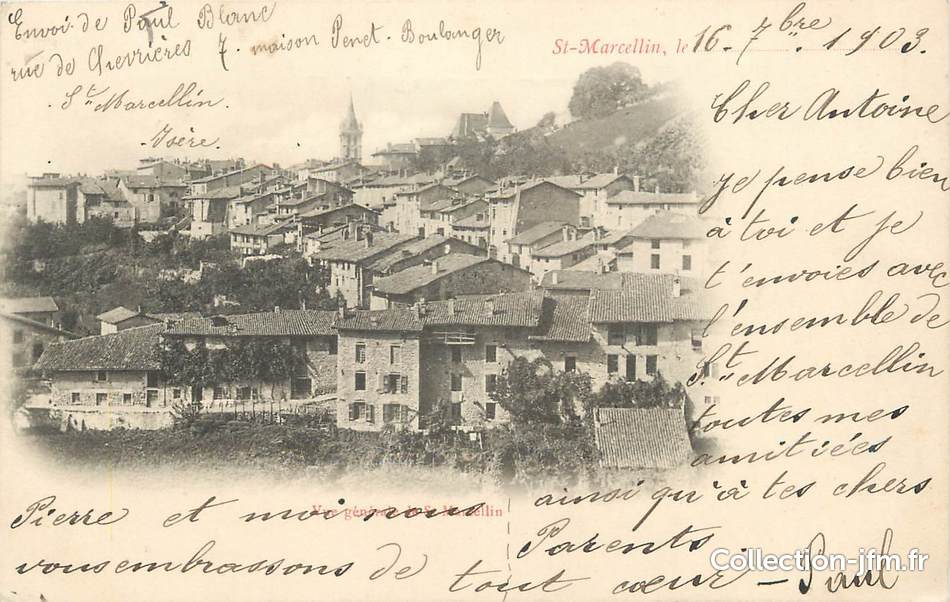 Envoi de Paul Blanc
rue de Chevrières 7. maison Penet-Boulanger
St Marcellin.
Isère.
St-Marcellin, le 16-7bre 1903.
Cher Antoine
Je pense bien
à toi et je
t'envoies avec
l'ensemble de
St Marcellin
toutes mes
amitiées
ainsi qu'à tes chers
Parents
Pierre et moi nous
vous embrassons de tout cœur - Paul
Vue générale de St-Marcellin
Collection-jfm.fr